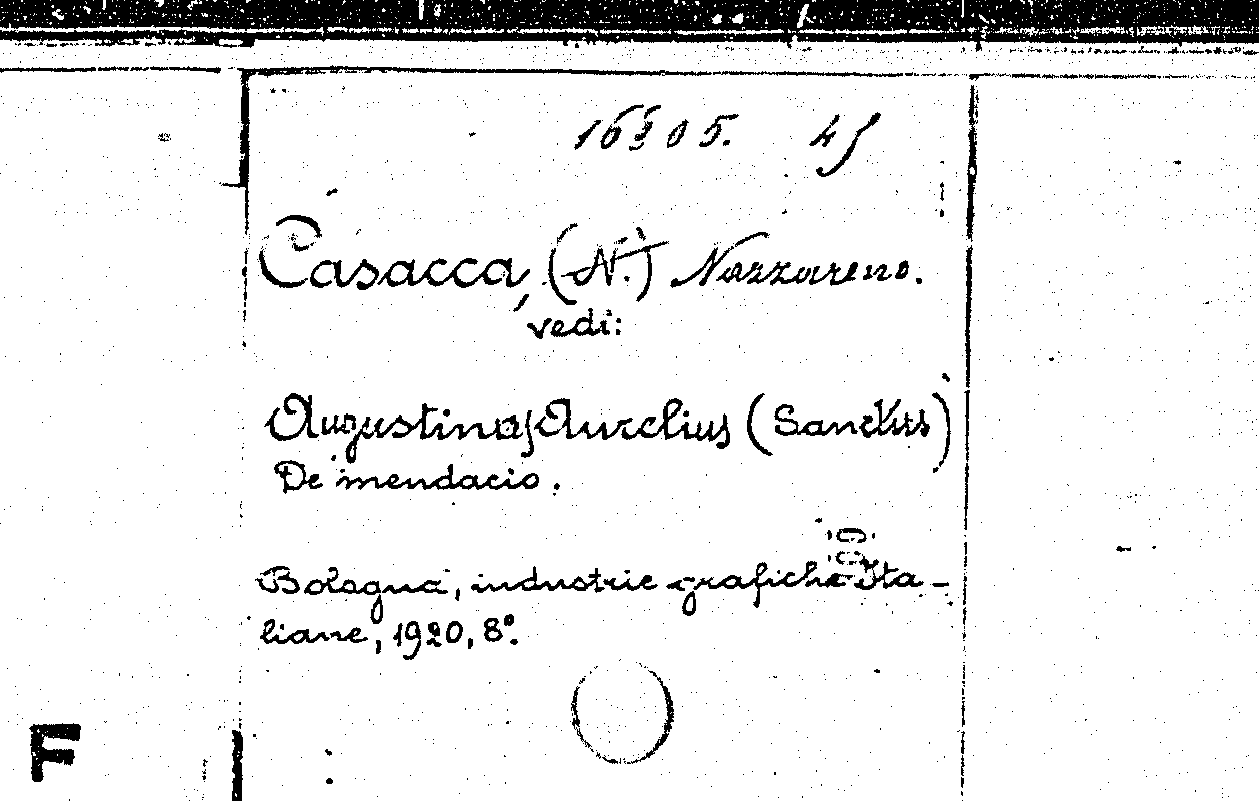 16305. 4f
Casacca, (N.) Nazzareno.
vedi:
Augustinus Aurelius (Sanctus)
De mendacio.
Bologna, industrie grafiche Ita-
liane, 1920, 8°.
F